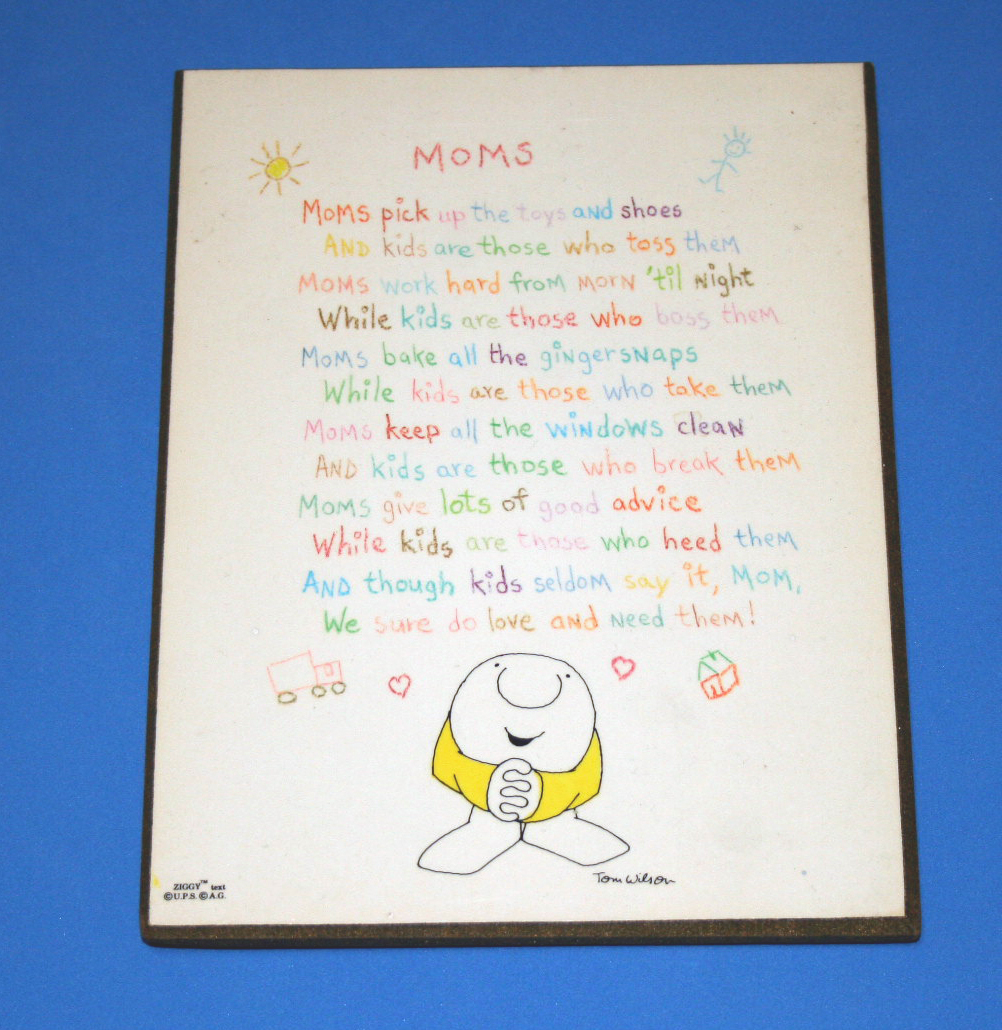 MOMS
MOMS pick up the toys AND shoes
AND kids are those who toss them
MOMS work hard from MORN 'til Night
While kids are those who boss them
MOMS bake all the giNgersNaps
While kids are those who take them
MOMS keep all the wiNdows cleaN
AND kids are those who break them
MOMS give lots of good advice
While kids are those who heed them
AND though kids seldom say it, MOM,
We sure do love AND Need them!
Tom Wilson
ZIGGY™ text
©U.P.S. ©A.G.